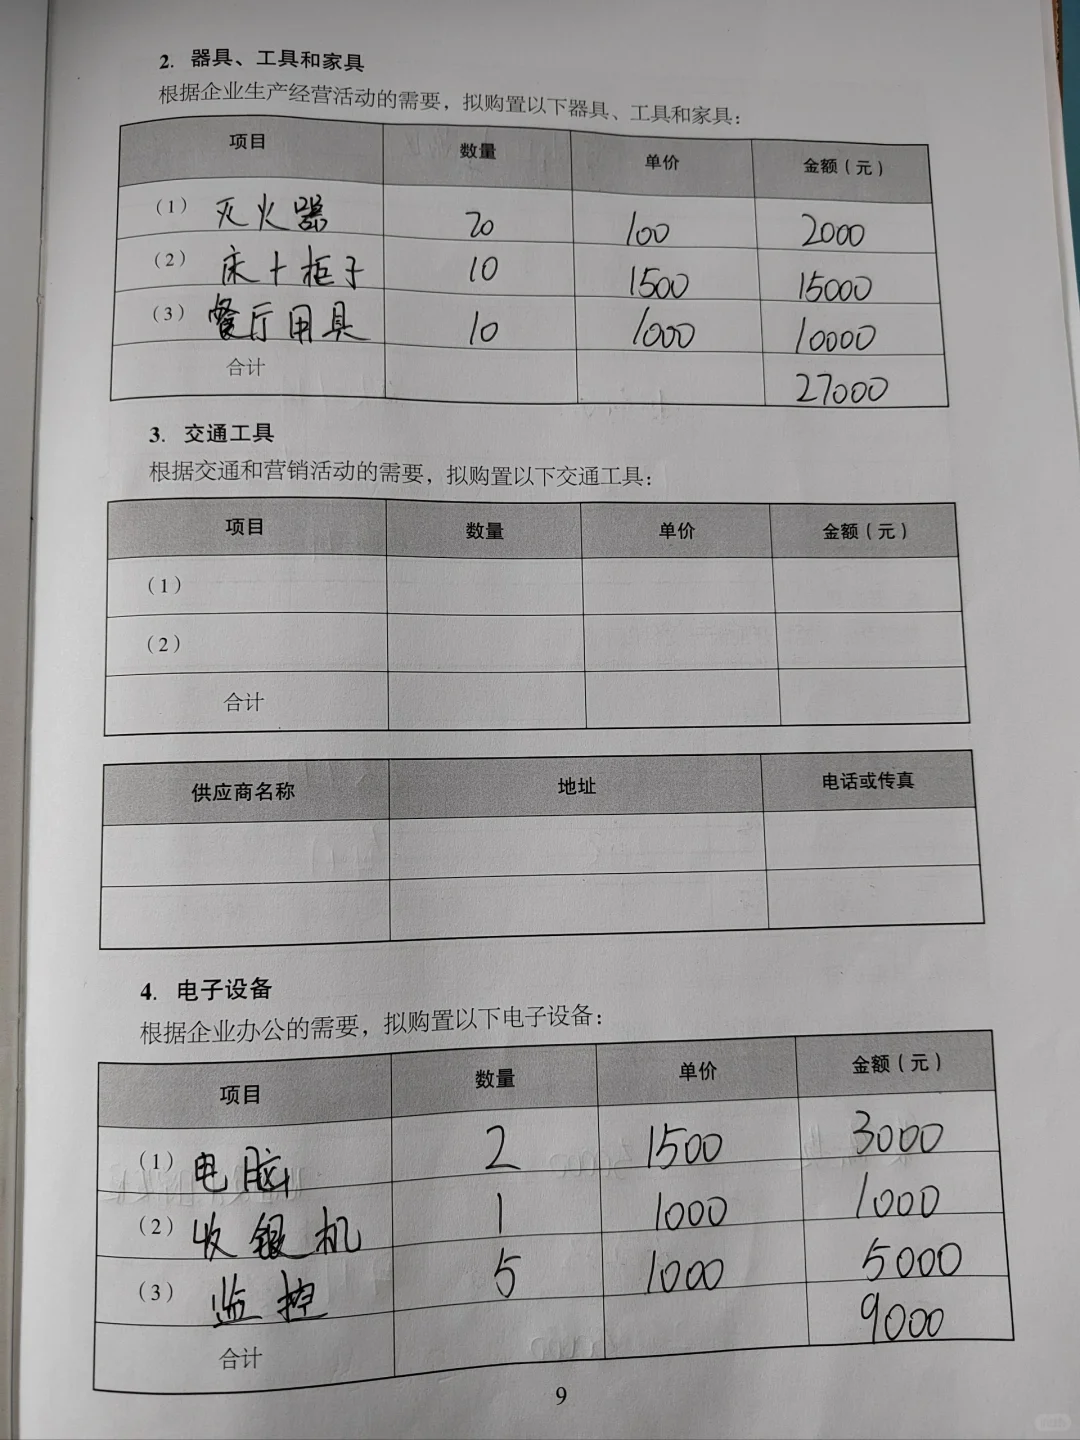 2. 器具、工具和家具
根据企业生产经营活动的需要，拟购置以下器具、工具和家具：
项目 数量 单价 金额（元）
（1） 灭火器 20 100 2000
（2） 床+柜子 10 1500 15000
（3） 餐厅用具 10 1000 10000
合计 27000
3. 交通工具
根据交通和营销活动的需要，拟购置以下交通工具：
项目 数量 单价 金额（元）
（1）
（2）
合计
供应商名称 地址 电话或传真
4. 电子设备
根据企业办公的需要，拟购置以下电子设备：
项目 数量 单价 金额（元）
（1） 电脑 2 1500 3000
（2） 收银机 1 1000 1000
（3） 监控 5 1000 5000
合计 9000
9